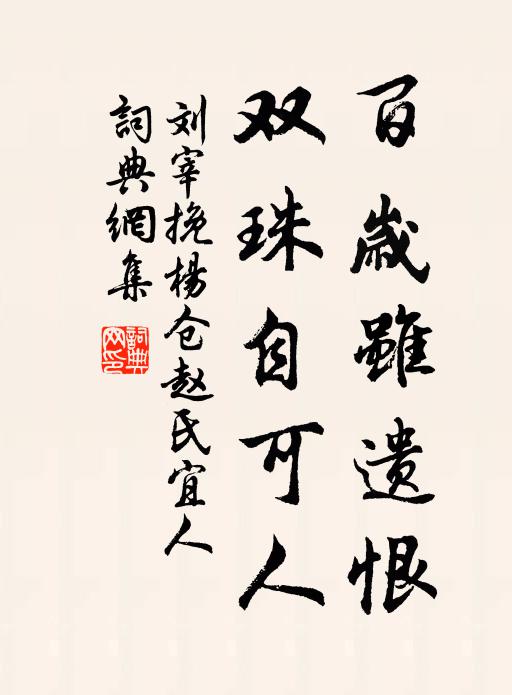 百岁雖遗恨
双珠自可人
刘宰挽楊仓赵氏宜人
詞典網集
詞典网印